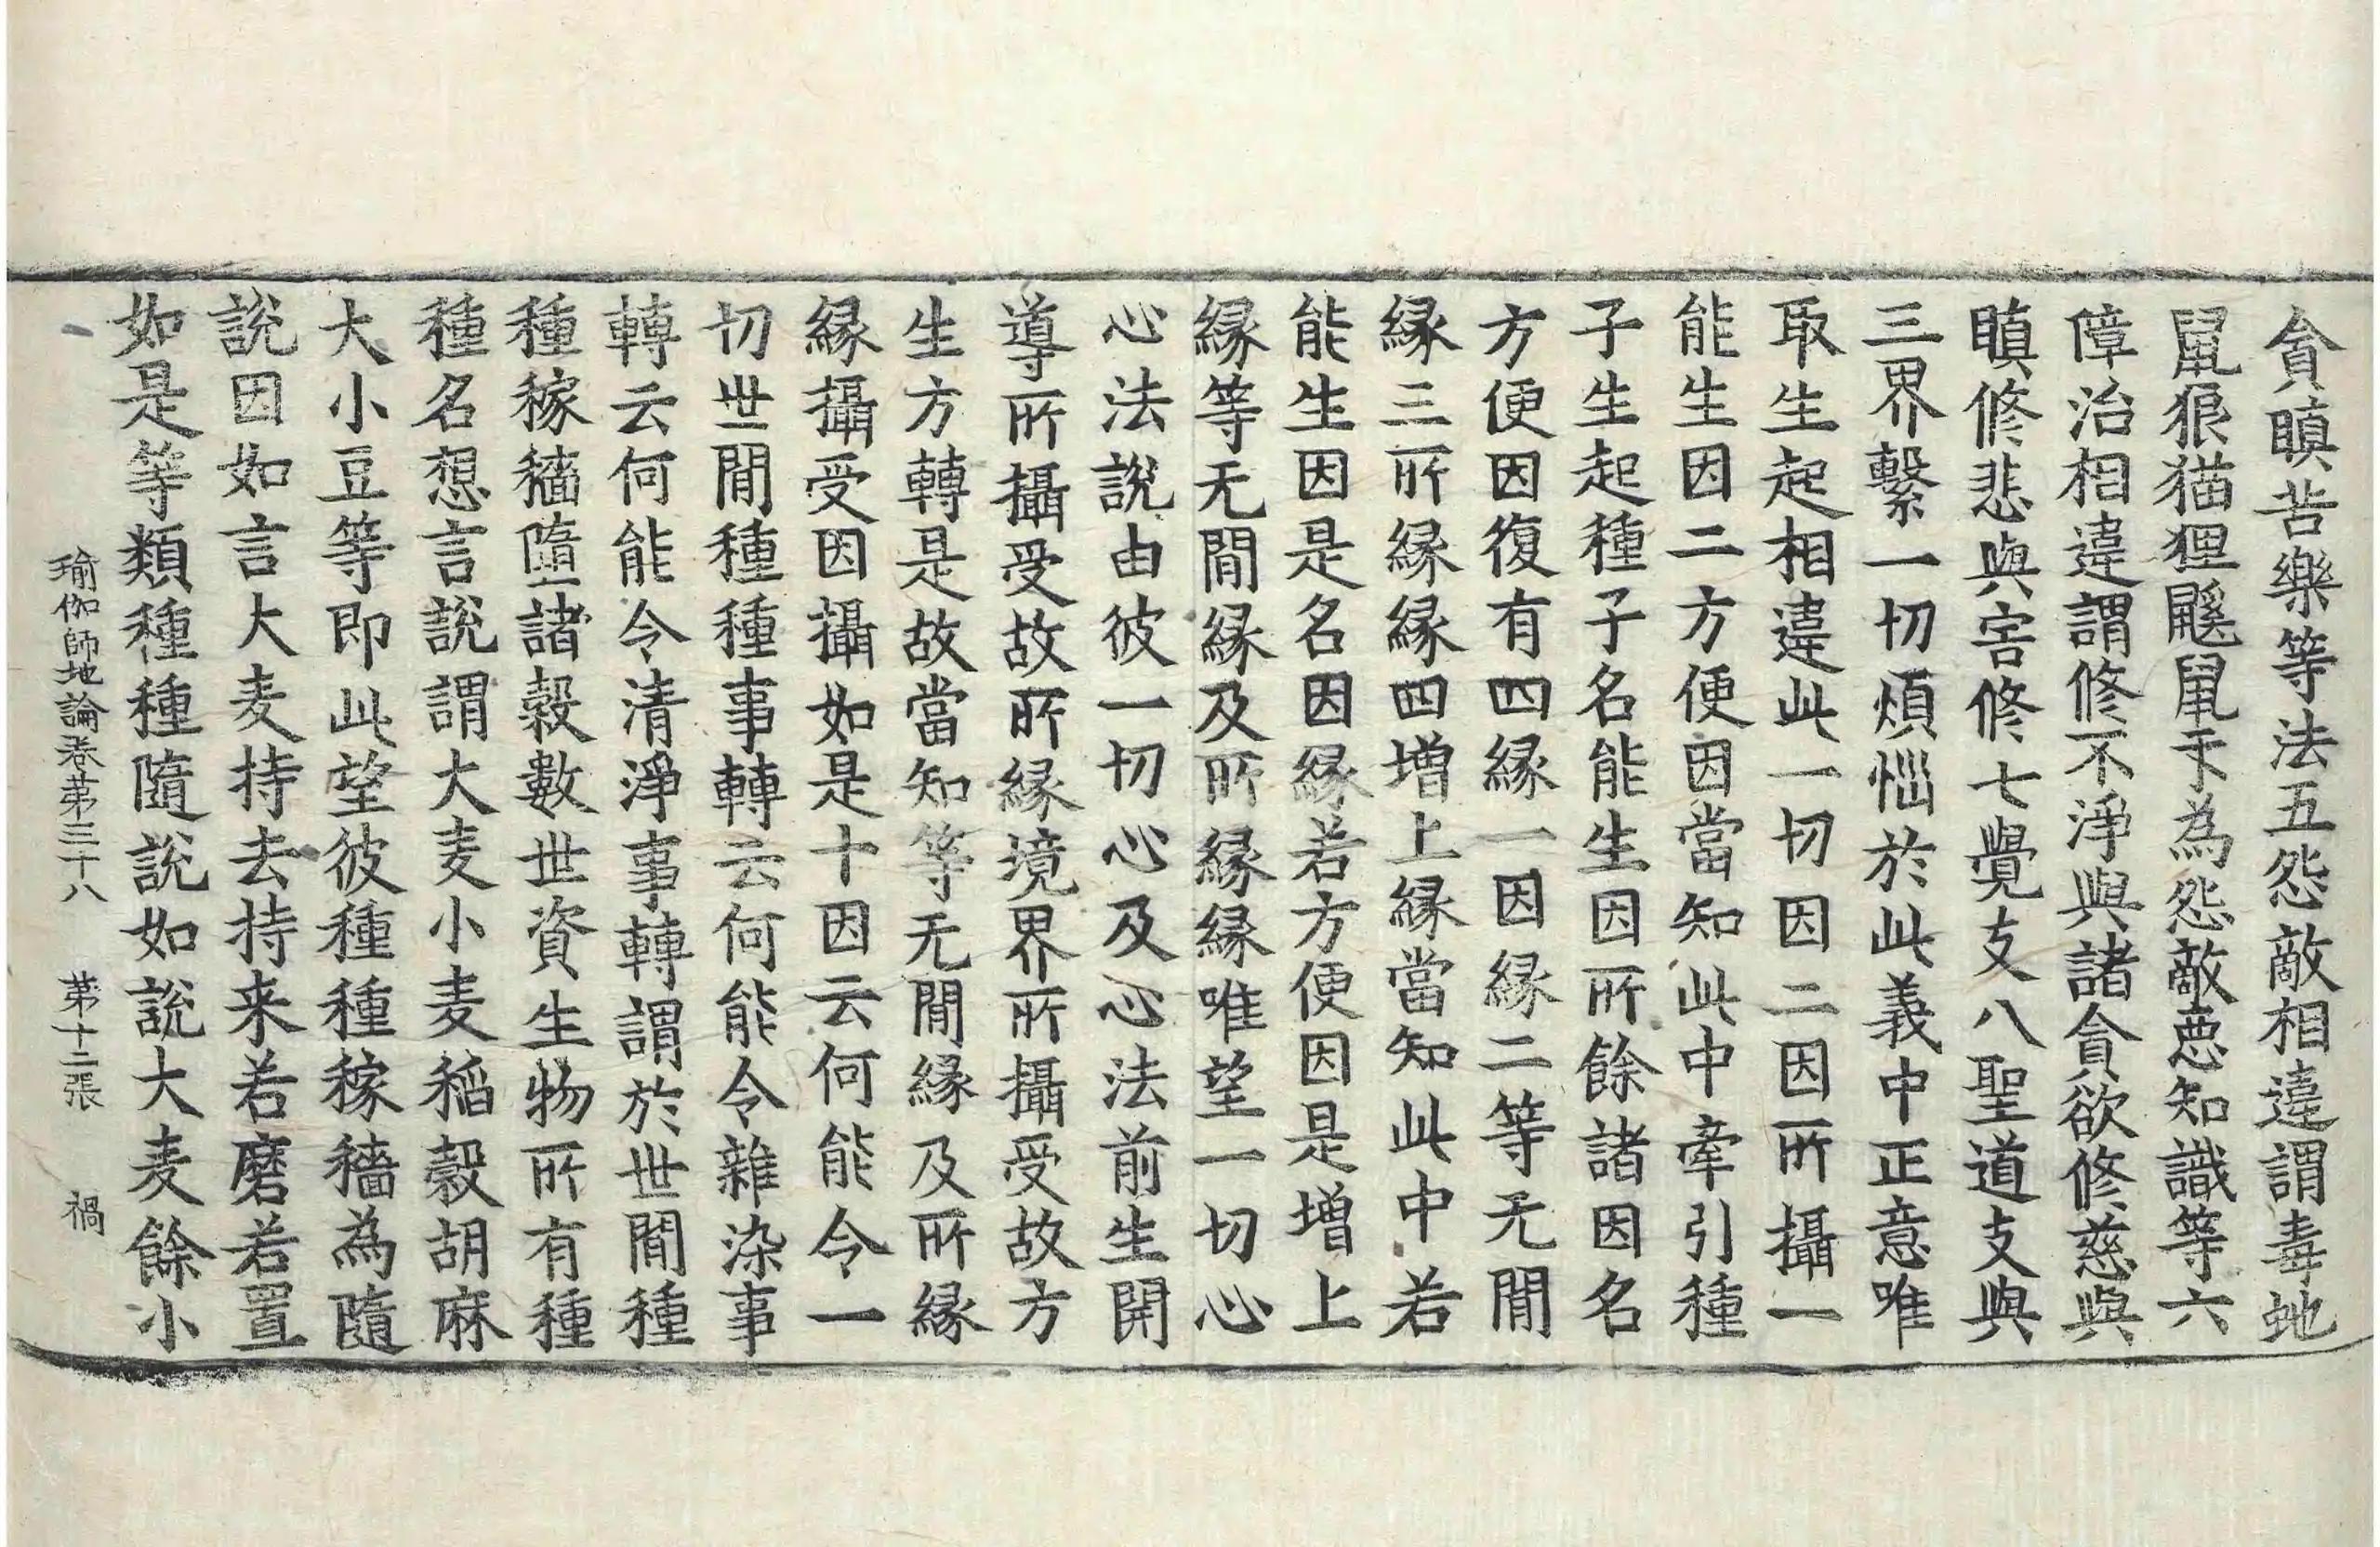 貪瞋苦樂等法五怨敵相違謂毒虵
鼠狼猫狸鼷鼠㸦為怨敵惡知識等六
障治相違謂修不淨與諸貪欲修慈與
瞋修悲與害修七覺支八聖道支與
三界繫一切煩惱於此義中正意唯
取生起相違此一切因二因所攝一
能生因二方便因當知此中牽引種
子生起種子名能生因所餘諸因名
方便因復有四緣一因緣二等无間
緣三所緣緣四增上緣當知此中若
能生因是名因緣若方便因是增上
緣等无間緣及所緣緣唯望一切心
心法說由彼一切心及心法前生開
導所攝受故所緣境界所攝受故方
生方轉是故當知等无間緣及所緣
緣攝受因攝如是十因云何能令一
切世間種種事轉云何能令雜染事
轉云何能令清淨事轉謂於世間種
種稼穡墮諸穀數世資生物所有種
種名想言說謂大麦小麦稻穀胡麻
大小豆等即此望彼種種稼穡為隨
說因如言大麦持去持来若磨若置
如是等類種種隨說如說大麦餘小
瑜伽師地論卷苐三十八 苐十二張 禍